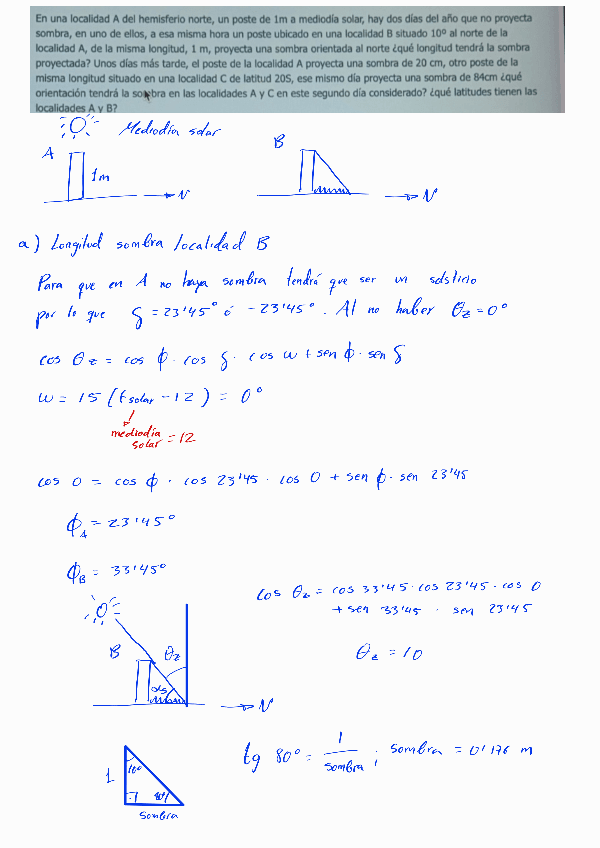 En una localidad A del hemisferio norte, un poste de 1m a mediodía solar, hay dos días del año que no proyecta
sombra, en uno de ellos, a esa misma hora un poste ubicado en una localidad B situado 10º al norte de la
localidad A, de la misma longitud, 1 m, proyecta una sombra orientada al norte ¿qué longitud tendrá la sombra
proyectada? Unos días más tarde, el poste de la localidad A proyecta una sombra de 20 cm, otro poste de la
misma longitud situado en una localidad C de latitud 20S, ese mismo día proyecta una sombra de 84cm ¿qué
orientación tendrá la sombra en las localidades A y C en este segundo día considerado? ¿qué latitudes tienen las
localidades A y B?
Mediodía solar
A
1m
N
B
N
a) Longitud sombra localidad B
Para que en A no haya sombra tendrá que ser un solsticio
por lo que δ = 23'45° ó - 23'45°. Al no haber θz = 0°
cos θz = cos ϕ · cos δ · cos w + sen ϕ · sen δ
w = 15 (t solar - 12) = 0°
mediodía solar = 12
cos 0 = cos ϕ · cos 23'45 · cos 0 + sen ϕ · sen 23'45
ϕA = 23'45°
ϕB = 33'45°
cos θz = cos 33'45 · cos 23'45 · cos 0
+ sen 33'45 · sen 23'45
θz = 10
B
θz
αs
N
tg 80° = 1 / sombra ; sombra = 0'176 m
1
10°
80°
sombra